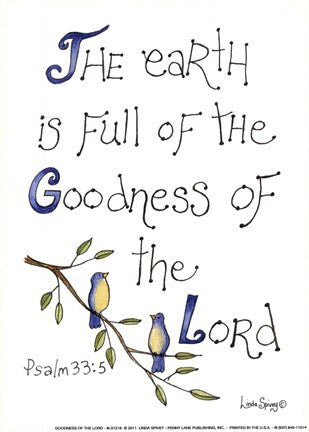 The earth
is Full of the
Goodness of
the
Lord
Psalm 33:5
Linda Spivey ©
GOODNESS OF THE LORD - #LS1216 © 2011 LINDA SPIVEY - PENNY LANE PUBLISHING, INC. - PRINTED IN THE U.S.A. - ® (937) 849-1101